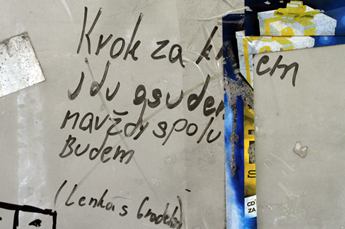 Krok za k em
jdu osude
navždy spolu
Budem
(Lenka s
CD
ZA